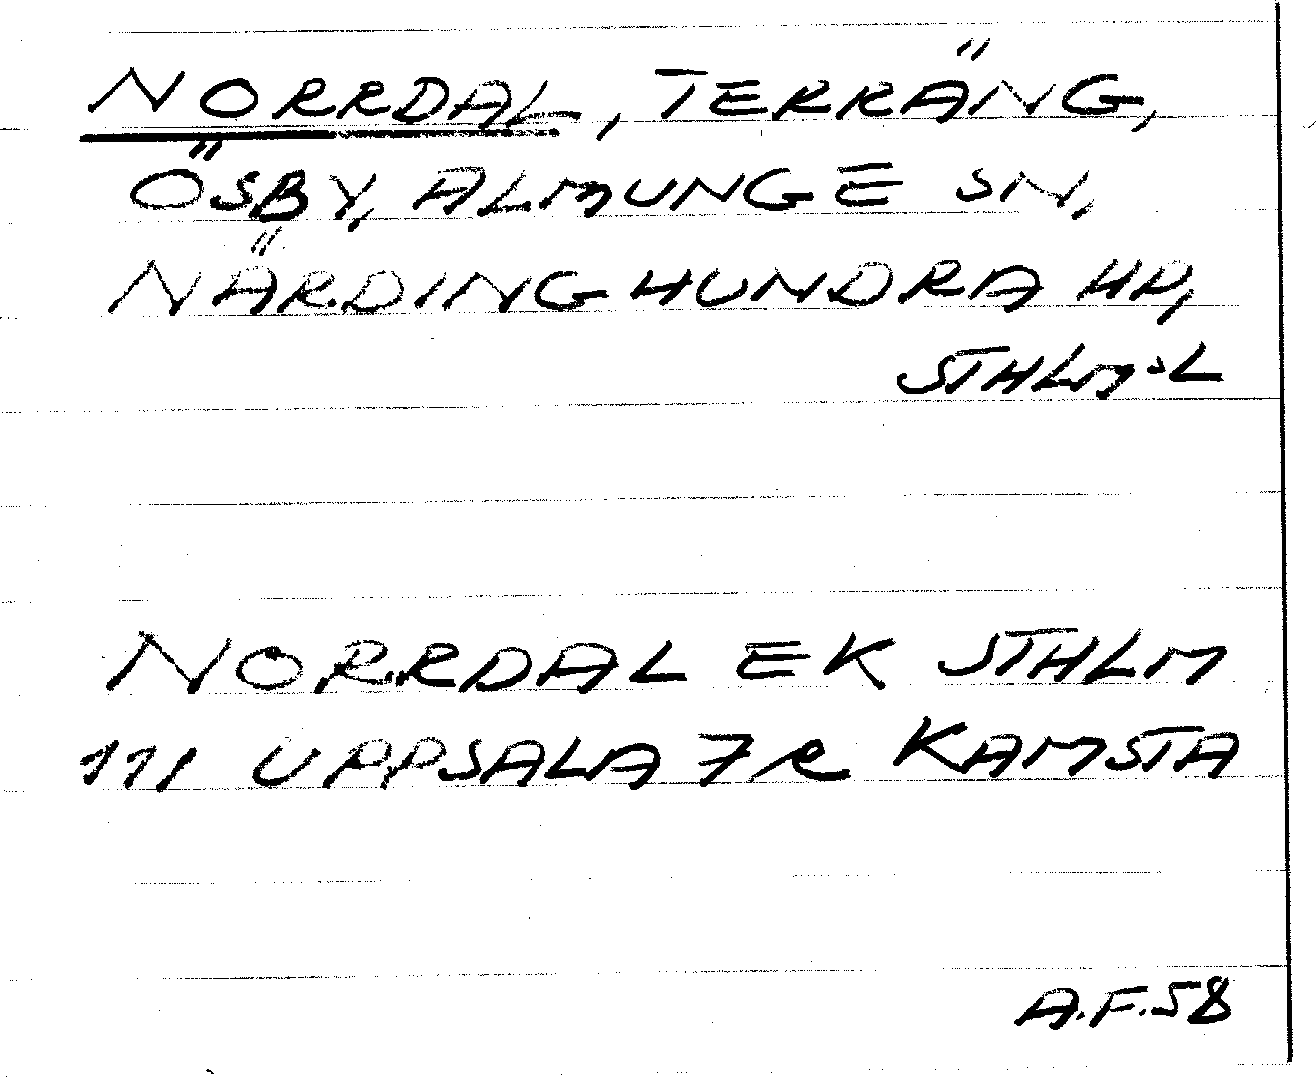 NORRDAL, TERRÄNG,
ÖSBY, ALMUNGE SN,
NÄRDINGHUNDRA HD,
STHLMS L
NORRDAL EK STHLM
111 UPPSALA 7R KAMSTA
A.F.58